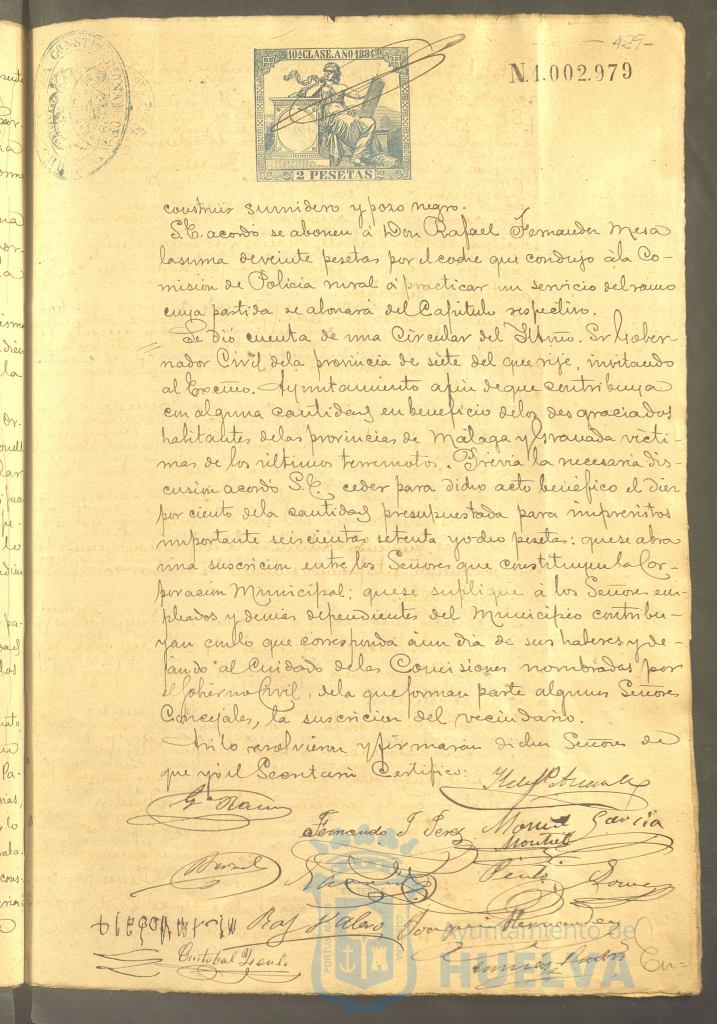 429-
10ª CLASE. AÑO 188
N.1.002.979
2 PESETAS
construir sumidero y pozo negro.
S.E. acordó se abonen á Don Rafael Fernandez Mesa
la suma de veinte pesetas por el coche que condujo á la Co-
misión de Policia rural á practicar un servicio del ramo
cuya partida se abonará del Capitulo respectivo.
Se dió cuenta de una Circular del Iltmo. Sr Gober-
nador Civil de la provincia de siete del que rije, invitando
al Excmo. Ayuntamiento a fin de que contribuya
con alguna cantidad en beneficio de los desgraciados
habitantes de las provincias de Málaga y Granada victi-
mas de los ultimos terremotos. Prévia la necesaria dis-
cusion acordó S.E. ceder para dicho acto benéfico el diez
por ciento de la cantidad presupuestada para imprevistos
importante seiscientas setenta y ocho pesetas: que se abra
una suscricion entre los Señores que constituyen la Cor-
poracion Municipal: que se suplique á los Señores em-
pleados y demas dependientes del Municipio contribu-
yan con lo que corresponda á un dia de sus haberes y de-
jando al Cuidado de las Comisiones nombradas por
el Gobierno Civil, de la que forman parte algunos Señores
Concejales, la suscricion del vecindario.
Asi lo resolvieron y firmarán dichos Señores de
que yo el Secretario Certifico:
Fernando T Perez Manuel Garcia
Montiel
Bernal
Raf Valero Joaquin Hernandez
Cristobal
Ayuntamiento de
HUELVA